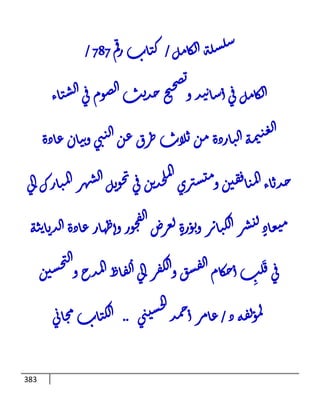 سلسلة الكامل / كتاب رقم 787 /
الكامل في أسانيد و تصحيح حديث الصوم في الشتاء
الغنيمة الباردة من ثلاث طرق عن النبي وبيان عادة
حدثاء المنافقين ومتستري الملحدين في تحويل الشهر المبارك إلي
ميعادٍ لنشر الكبائر وبؤرةٍ لعرض الفجور وإظهار عادة الدياثة
في قَلْبِ أحكام الفسق والكفر إلي ألفاظ المدح والتحسين
لمؤلفه د / عامر أحمد الحسيني .. الكتاب مجاني
383